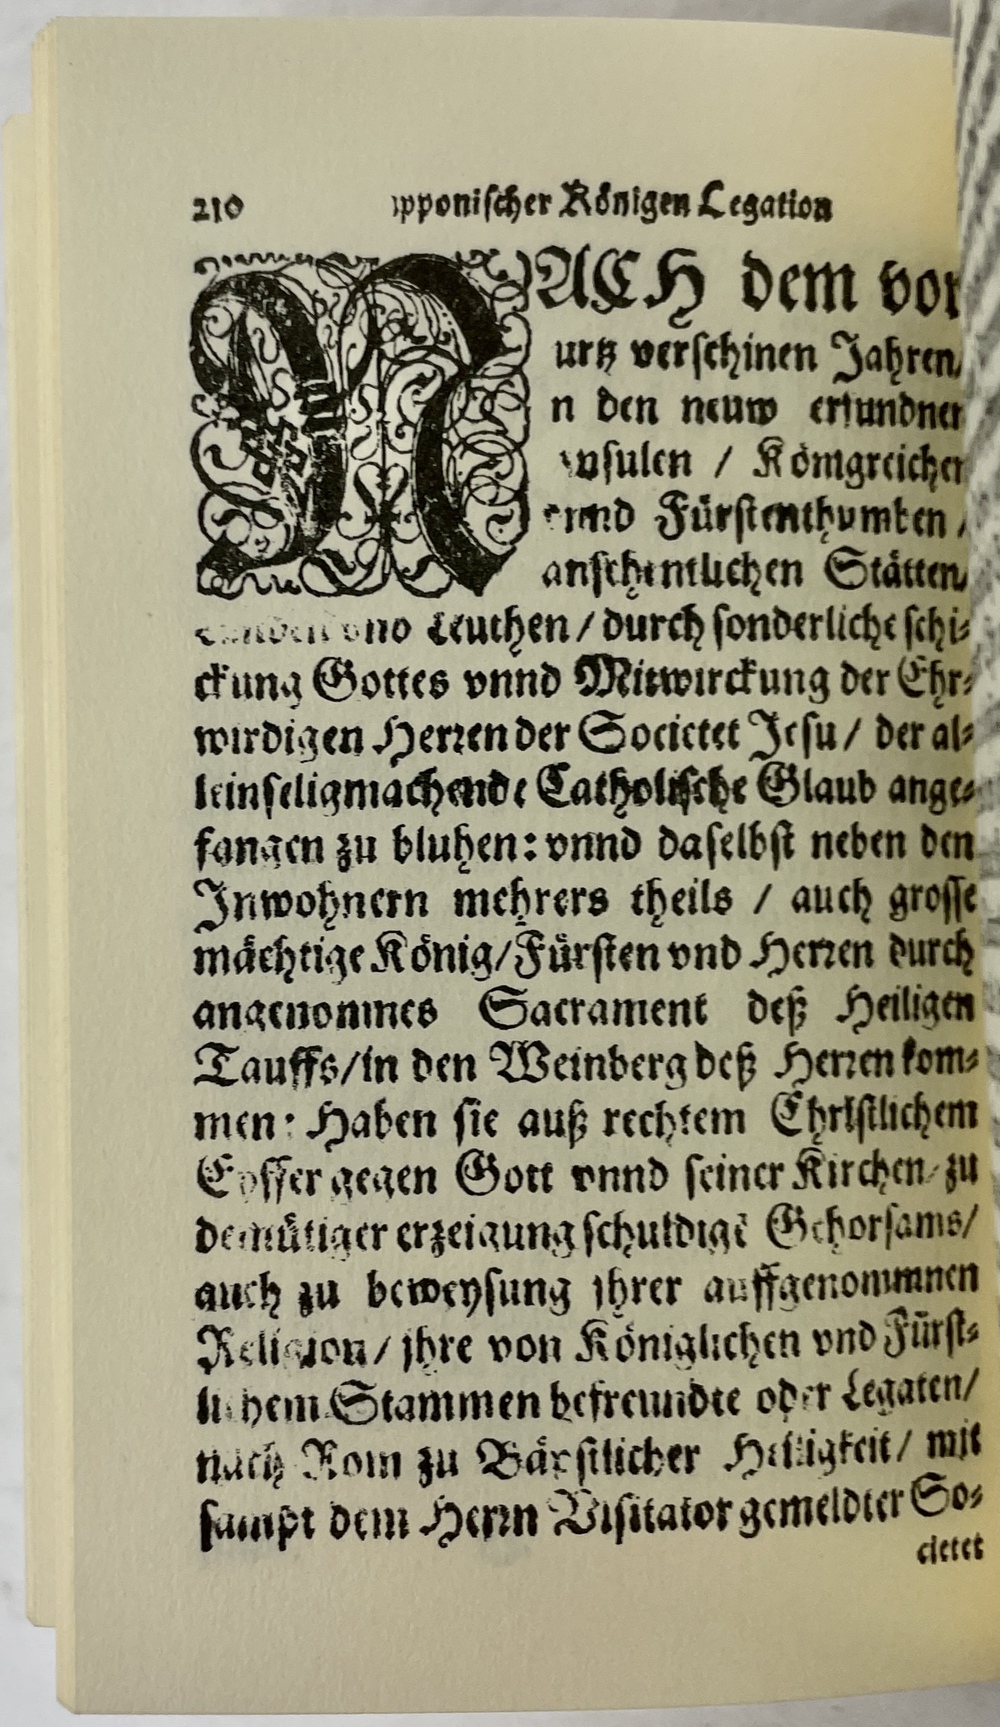 210 ipponischer Königen Legation
NACH dem vor
urtz verschinen Jahren/
n den neuw erfundnen
nsulen / Königreichen
vnnd Fürstenthumben /
ansehentlichen Stätten/
vnd Leuthen / durch sonderliche schi-
ckung Gottes vnnd Mitwirckung der Ehr-
wirdigen Herren der Societet Jesu / der al-
leinseligmachende Catholische Glaub ange-
fangen zu bluhen: vnnd daselbst neben den
Inwohnern mehrers theils / auch grosse
mächtige König/Fürsten vnd Herren durch
angenommes Sacrament deß Heiligen
Tauffs/in den Weinberg deß Herren kom-
men: Haben sie auß rechtem Christlichem
Eyffer gegen Gott vnnd seiner Kirchen/zu
demütiger erzeigung schuldige Gehorsams/
auch zu beweysung jhrer auffgenommnen
Religion/ jhre von Königlichen vnd Fürst-
lichem Stammen befreundte oder Legaten/
nach Rom zu Bäpstlicher Heiligkeit/ mit
sampt dem Herrn Visitator gemeldter So-
cietet